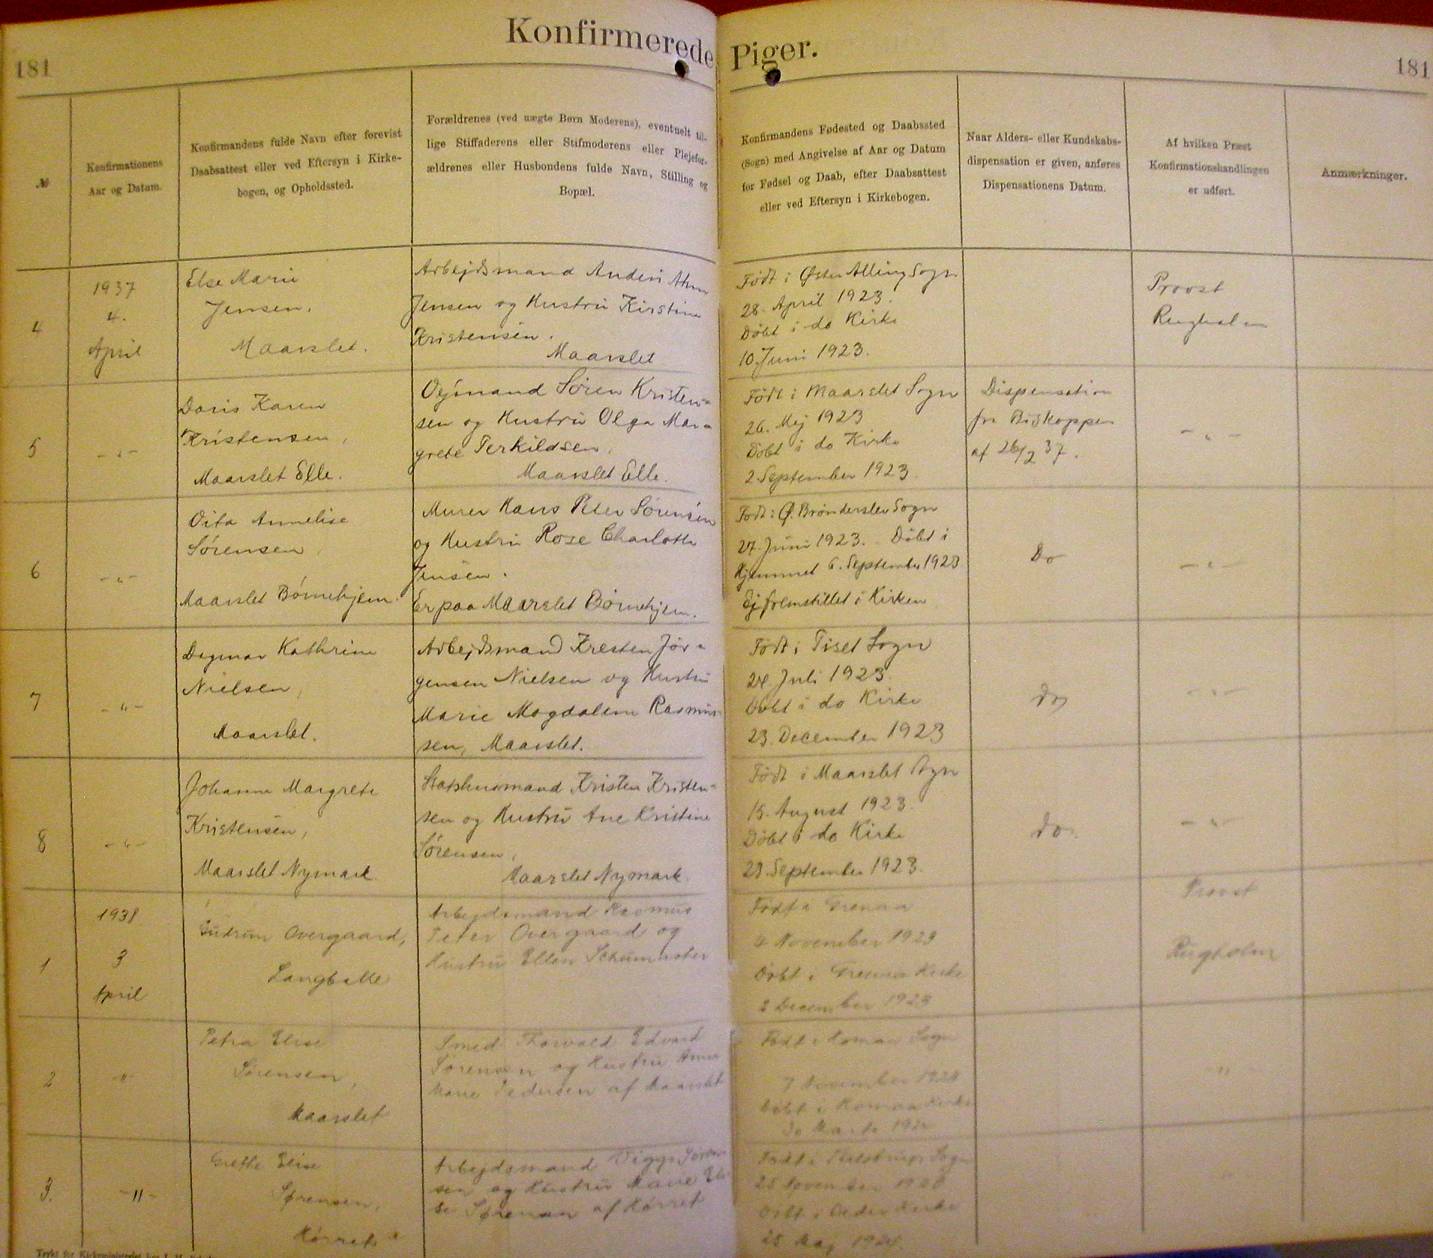 Konfirmerede Piger.
181
181
№
Konfirmationens
Aar og Datum.
Konfirmandens fulde Navn efter forevist
Daabsattest eller ved Eftersyn i Kirke-
bogen, og Opholdssted.
Forældrenes (ved uægte Børn Moderens), eventuelt til-
lige Stiffaderens eller Stifmoderens eller Plejefor-
ældrenes eller Husbondens fulde Navn, Stilling og
Bopæl.
Konfirmandens Fødested og Daabssted
(Sogn) med Angivelse af Aar og Datum
for Fødsel og Daab, efter Daabsattest
eller ved Eftersyn i Kirkebogen.
Naar Alders- eller Kundskabs-
dispensation er given, anføres
Dispensationens Datum.
Af hvilken Præst
Konfirmationshandlingen
er udført.
Anmærkninger.
4
1937
4.
April
Else Marie
Jensen.
Maarslet.
Arbejdsmand Anders
Jensen og Hustru Kirstine
Kristensen.
Maarslet
Født i Øster Alling Sogn
28. April 1923.
Døbt i do Kirke
10. Juni 1923.
Provst
Rugholm
5
-"-
Doris Karen
Kristensen,
Maarslet Elle.
Vejmand Søren Kristen-
sen og Hustru Olga Mar-
grete Terkildsen.
Maarslet Elle.
Født i Maarslet Sogn
26. Maj 1923
Døbt i do Kirke
2. September 1923.
Dispensation
fra Biskoppen
af 26/2 37.
-"-
6
-"-
Oita Annelise
Sørensen,
Maarslet Børnehjem.
Murer Hans Peter Sørensen
og Hustru Rose Charlotte
Jensen.
Er paa Maarslet Børnehjem.
Født i Ø. Brønderslev Sogn
27. Juni 1923. Døbt i
Hjemmet 6. September 1923
Ej fremstillet i Kirken
Do
-"-
7
-"-
Dagmar Kathrine
Nielsen,
Maarslet.
Arbejdsmand Kresten Jør-
gensen Nielsen og Hustru
Marie Magdalene Rasmus-
sen, Maarslet.
Født i Tiset Sogn
24. Juli 1923.
Døbt i do Kirke
23. December 1923
do
-"-
8
-"-
Johanne Margrete
Kristensen,
Maarslet Nymark
Statshusmand Kristen Kristen-
sen og Hustru Ane Kristine
Sørensen,
Maarslet Nymark.
Født i Maarslet Sogn
15. August 1923.
Døbt i do Kirke
23. September 1923.
do
-"-
1
1938
3
April
Gudrun Overgaard,
Langballe
Arbejdsmand Rasmus
Peter Overgaard og
Hustru Ellen Schumacher
Født i Grenaa
4 November 1923
Døbt i Grenaa Kirke
2 December 1923
Provst
Rugholm
2
"
Petra Elise
Sørensen,
Maarslet
Smed Thorvald Edvard
Sørensen og Hustru Anna
Marie Pedersen af Maarslet
Født i Homaa Sogn
7 November
Døbt i Homaa Kirke
30 Marts
-"-
3.
-"-
Grethe Elise
Sørensen,
Hørret
Arbejdsmand Viggo Søren-
sen og Hustru Marie Eli-
se Sørensen af Hørret
Født i Sogn
25 November
Døbt i Kirke
25 Maj